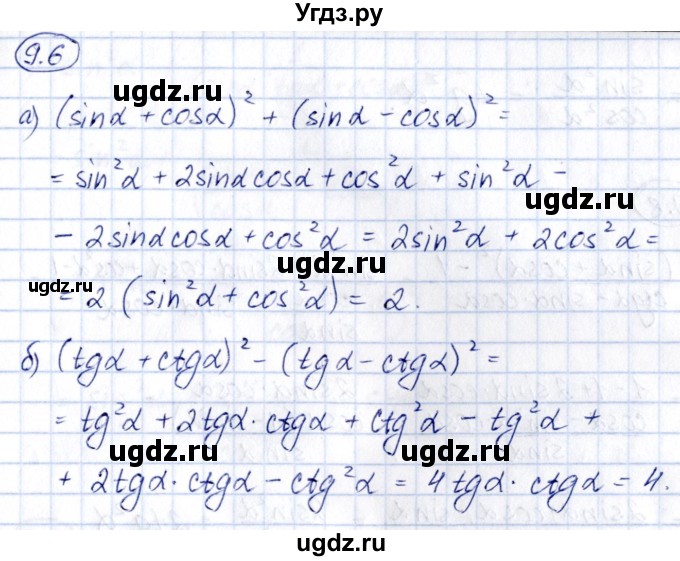 Угдз.ру
9.6
ugdz.ru
а) (sinα + cosα)² + (sinα - cosα)² =
= sin²α + 2sinαcosα + cos²α + sin²α -
ugdz.ru
- 2sinαcosα + cos²α = 2sin²α + 2cos²α =
ugdz.ru
= 2 (sin²α + cos²α) = 2.
ugdz.ru
б) (tgα + ctgα)² - (tgα - ctgα)² =
= tg²α + 2tgα · ctgα + ctg²α - tg²α +
ugdz.ru
ugdz.ru
+ 2tgα · ctgα - ctg²α = 4tgα · ctgα = 4.
ugdz.ru